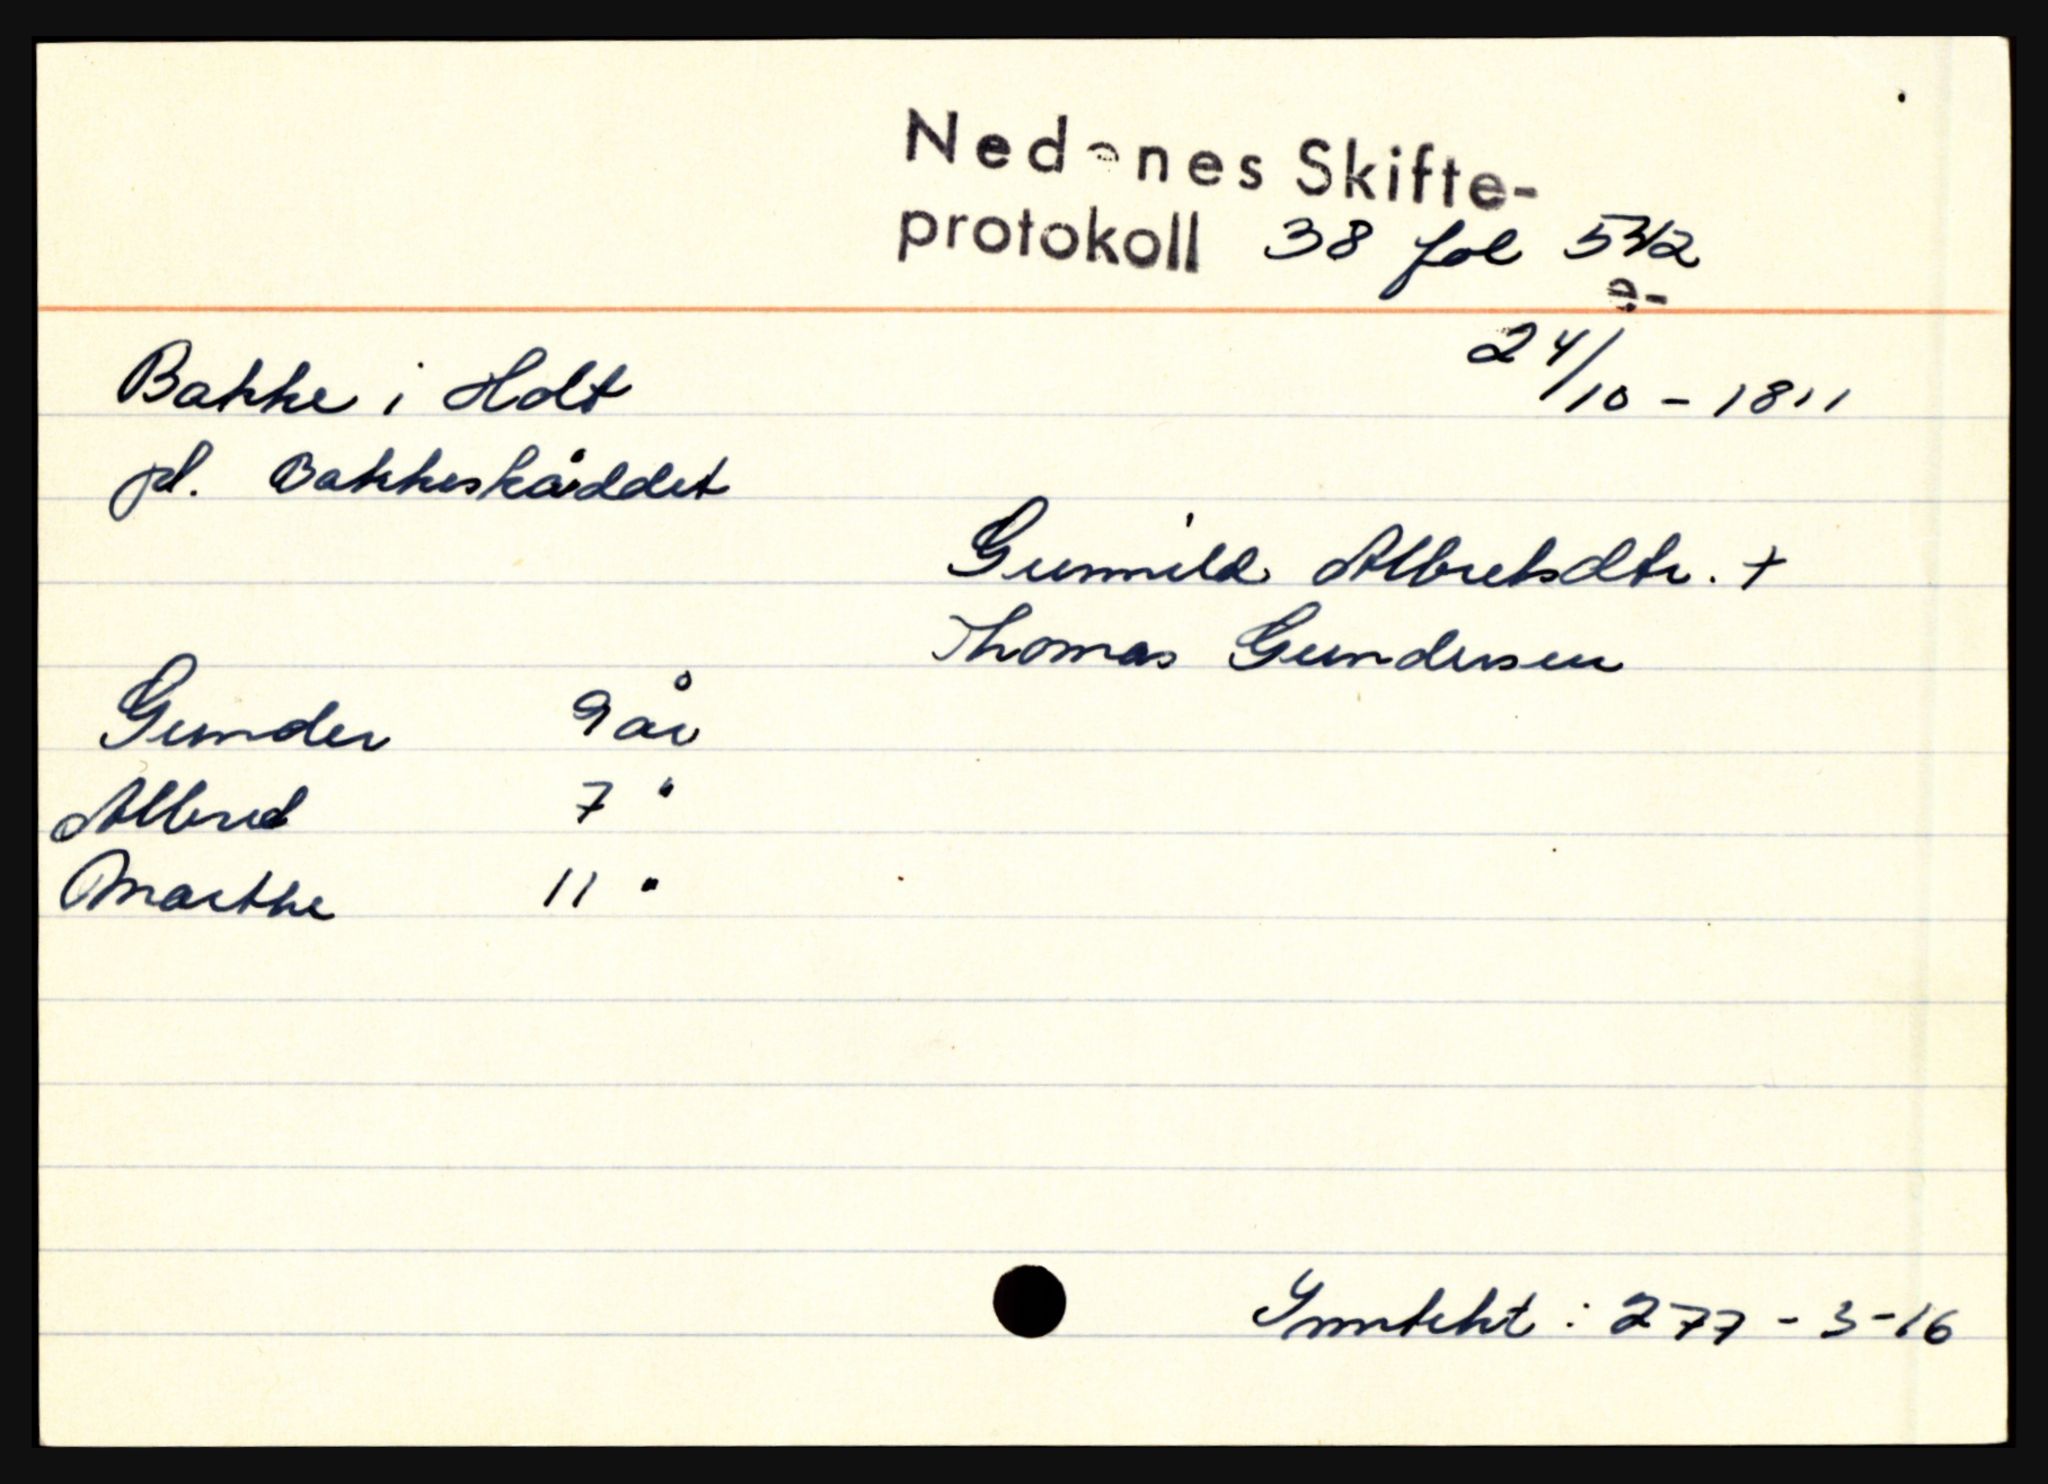 Nedenes Skifte-
protokoll 38 fol 542
e-
24/10 - 1811
Bakke i Holt
pl. Bakkeskåddet
Gunnild Albretsdtr. +
Thomas Gundersen
Gunder 9 år
Albred 7 "
Marthe 11 "
Inntekt : 277 - 3 - 16